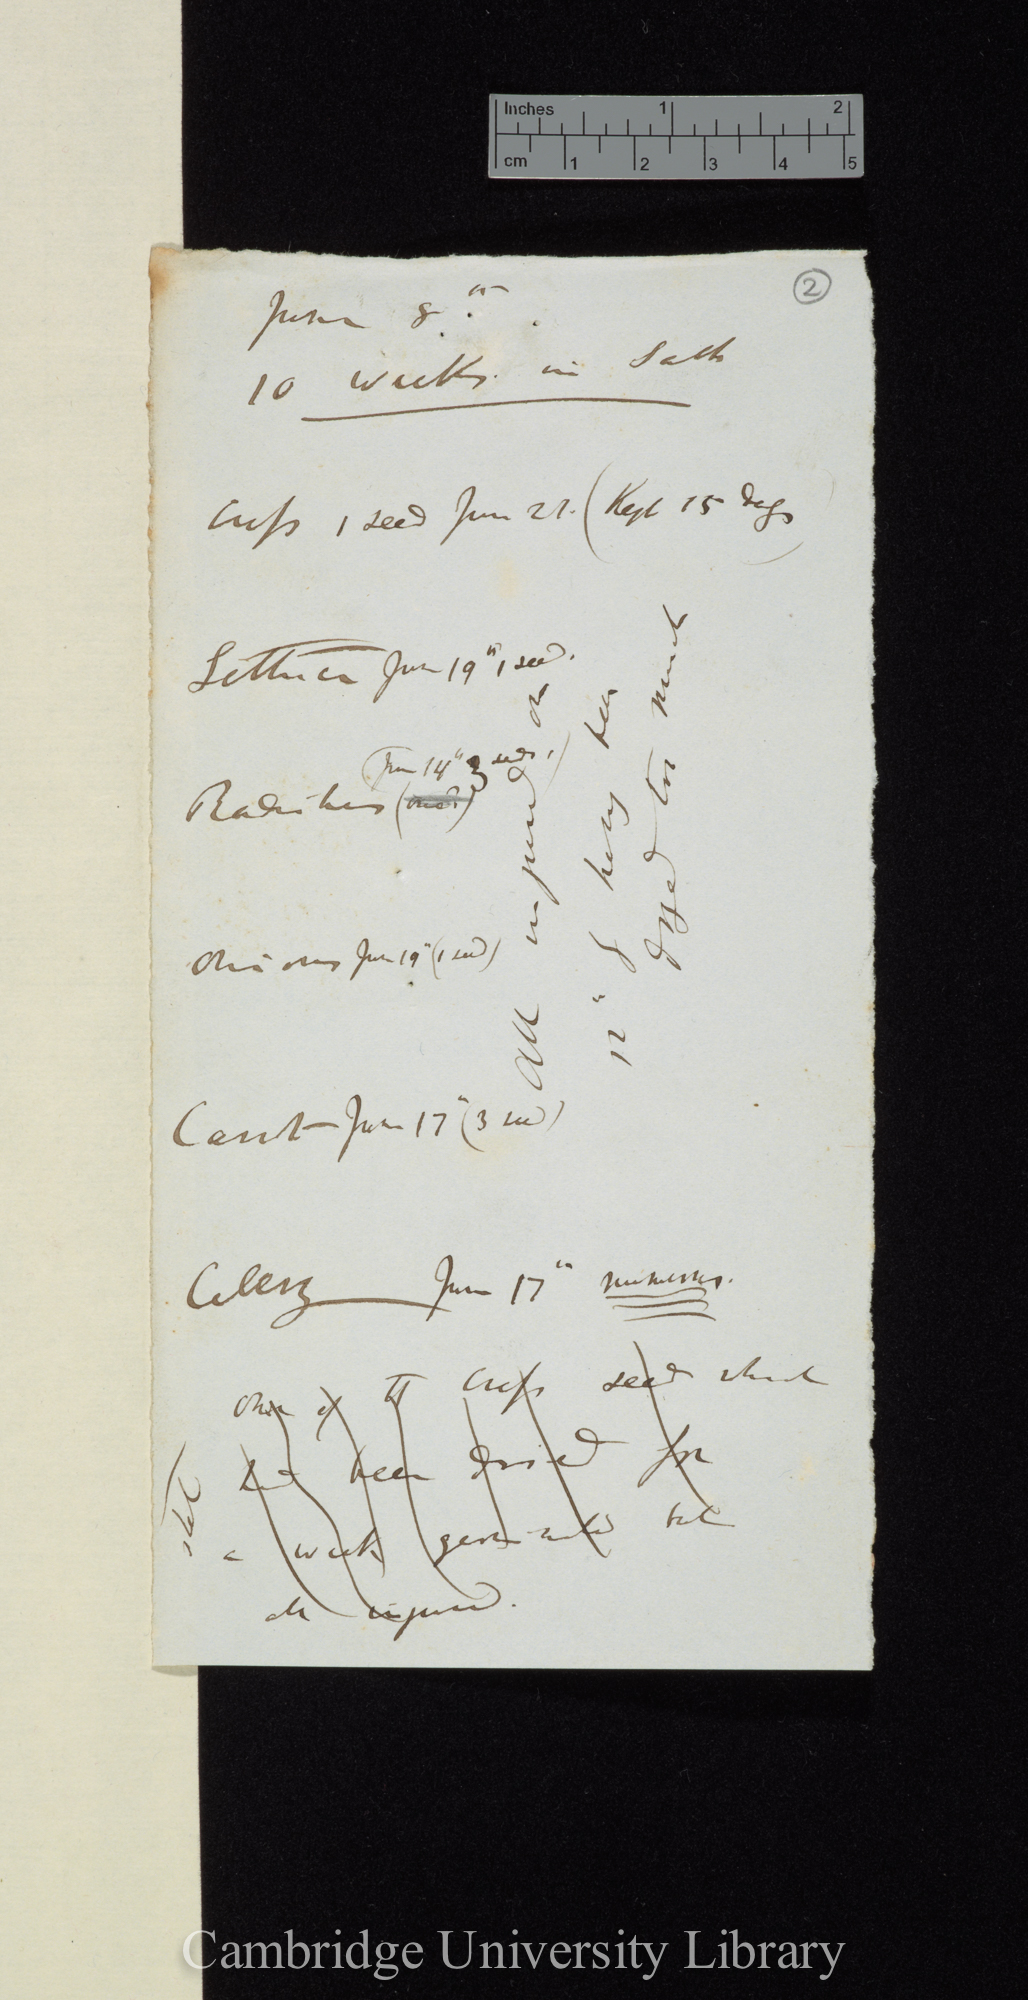 Inches 1 2
cm 1 2 3 4 5
2
June 8th.
10 weeks. in Salt
Cress 1 seed June 21. (Kept 15 days)
Lettuce June 19th 1 seed.
(June 14th 3 seeds.)
Radishes (one.)
Onions June 19th (1 seed)
Carrot June 17th (3 seed)
All injured on
12th by having been
dryed too much
Celery June 17th numerous.
One of the Cress seed which
had been dried for
a week germinated but
all injured.
stet
Cambridge University Library